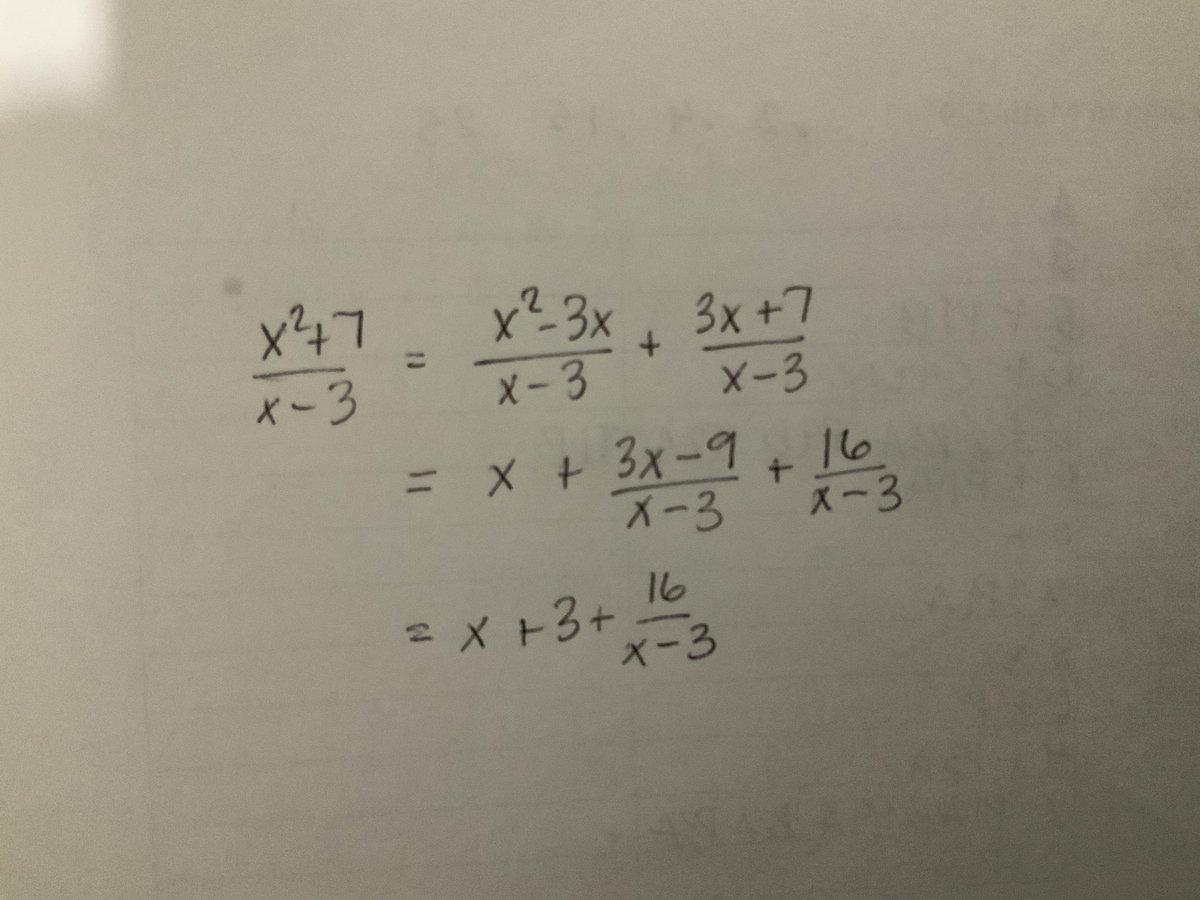 x²+7/x-3 = x²-3x/x-3 + 3x+7/x-3
= x + 3x-9/x-3 + 16/x-3
= x+3+ 16/x-3